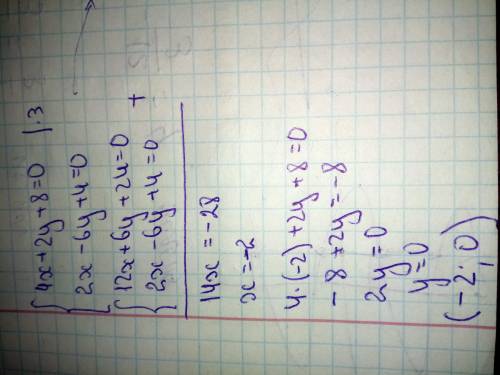 {4x+2y+8=0 |·3
{2x-6y+4=0
{12x+6y+24=0 +
{2x-6y+4=0
14x=-28
x=-2
4·(-2)+2y+8=0
-8+2y=-8
2y=0
y=0
(-2; 0)